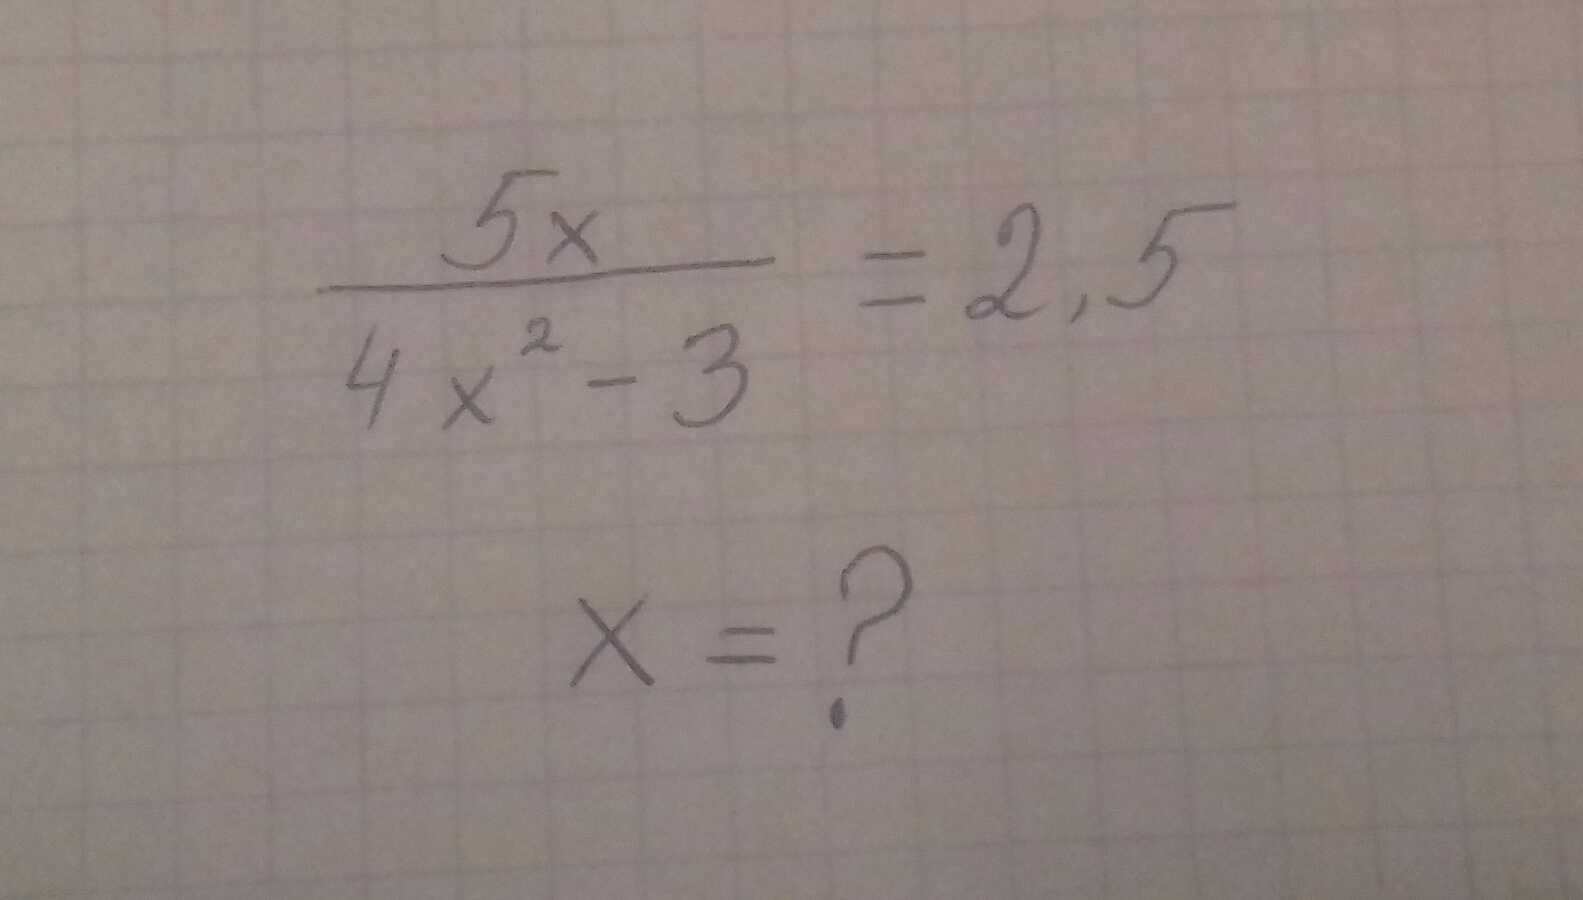 5x
4x² - 3
= 2,5
x = ?